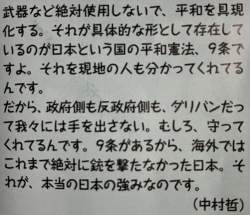 武器など絶対使用しないで、平和を具現
化する。それが具体的な形として存在して
いるのが日本という国の平和憲法、9条で
すよ。それを現地の人も分かってくれてる
んです。
だから、政府側も反政府側も、タリバンだっ
て我々には手を出さない。むしろ、守って
くれてるんです。9条があるから、海外では
これまで絶対に銃を撃たなかった日本。そ
れが、本当の日本の強みなのです。
(中村哲)